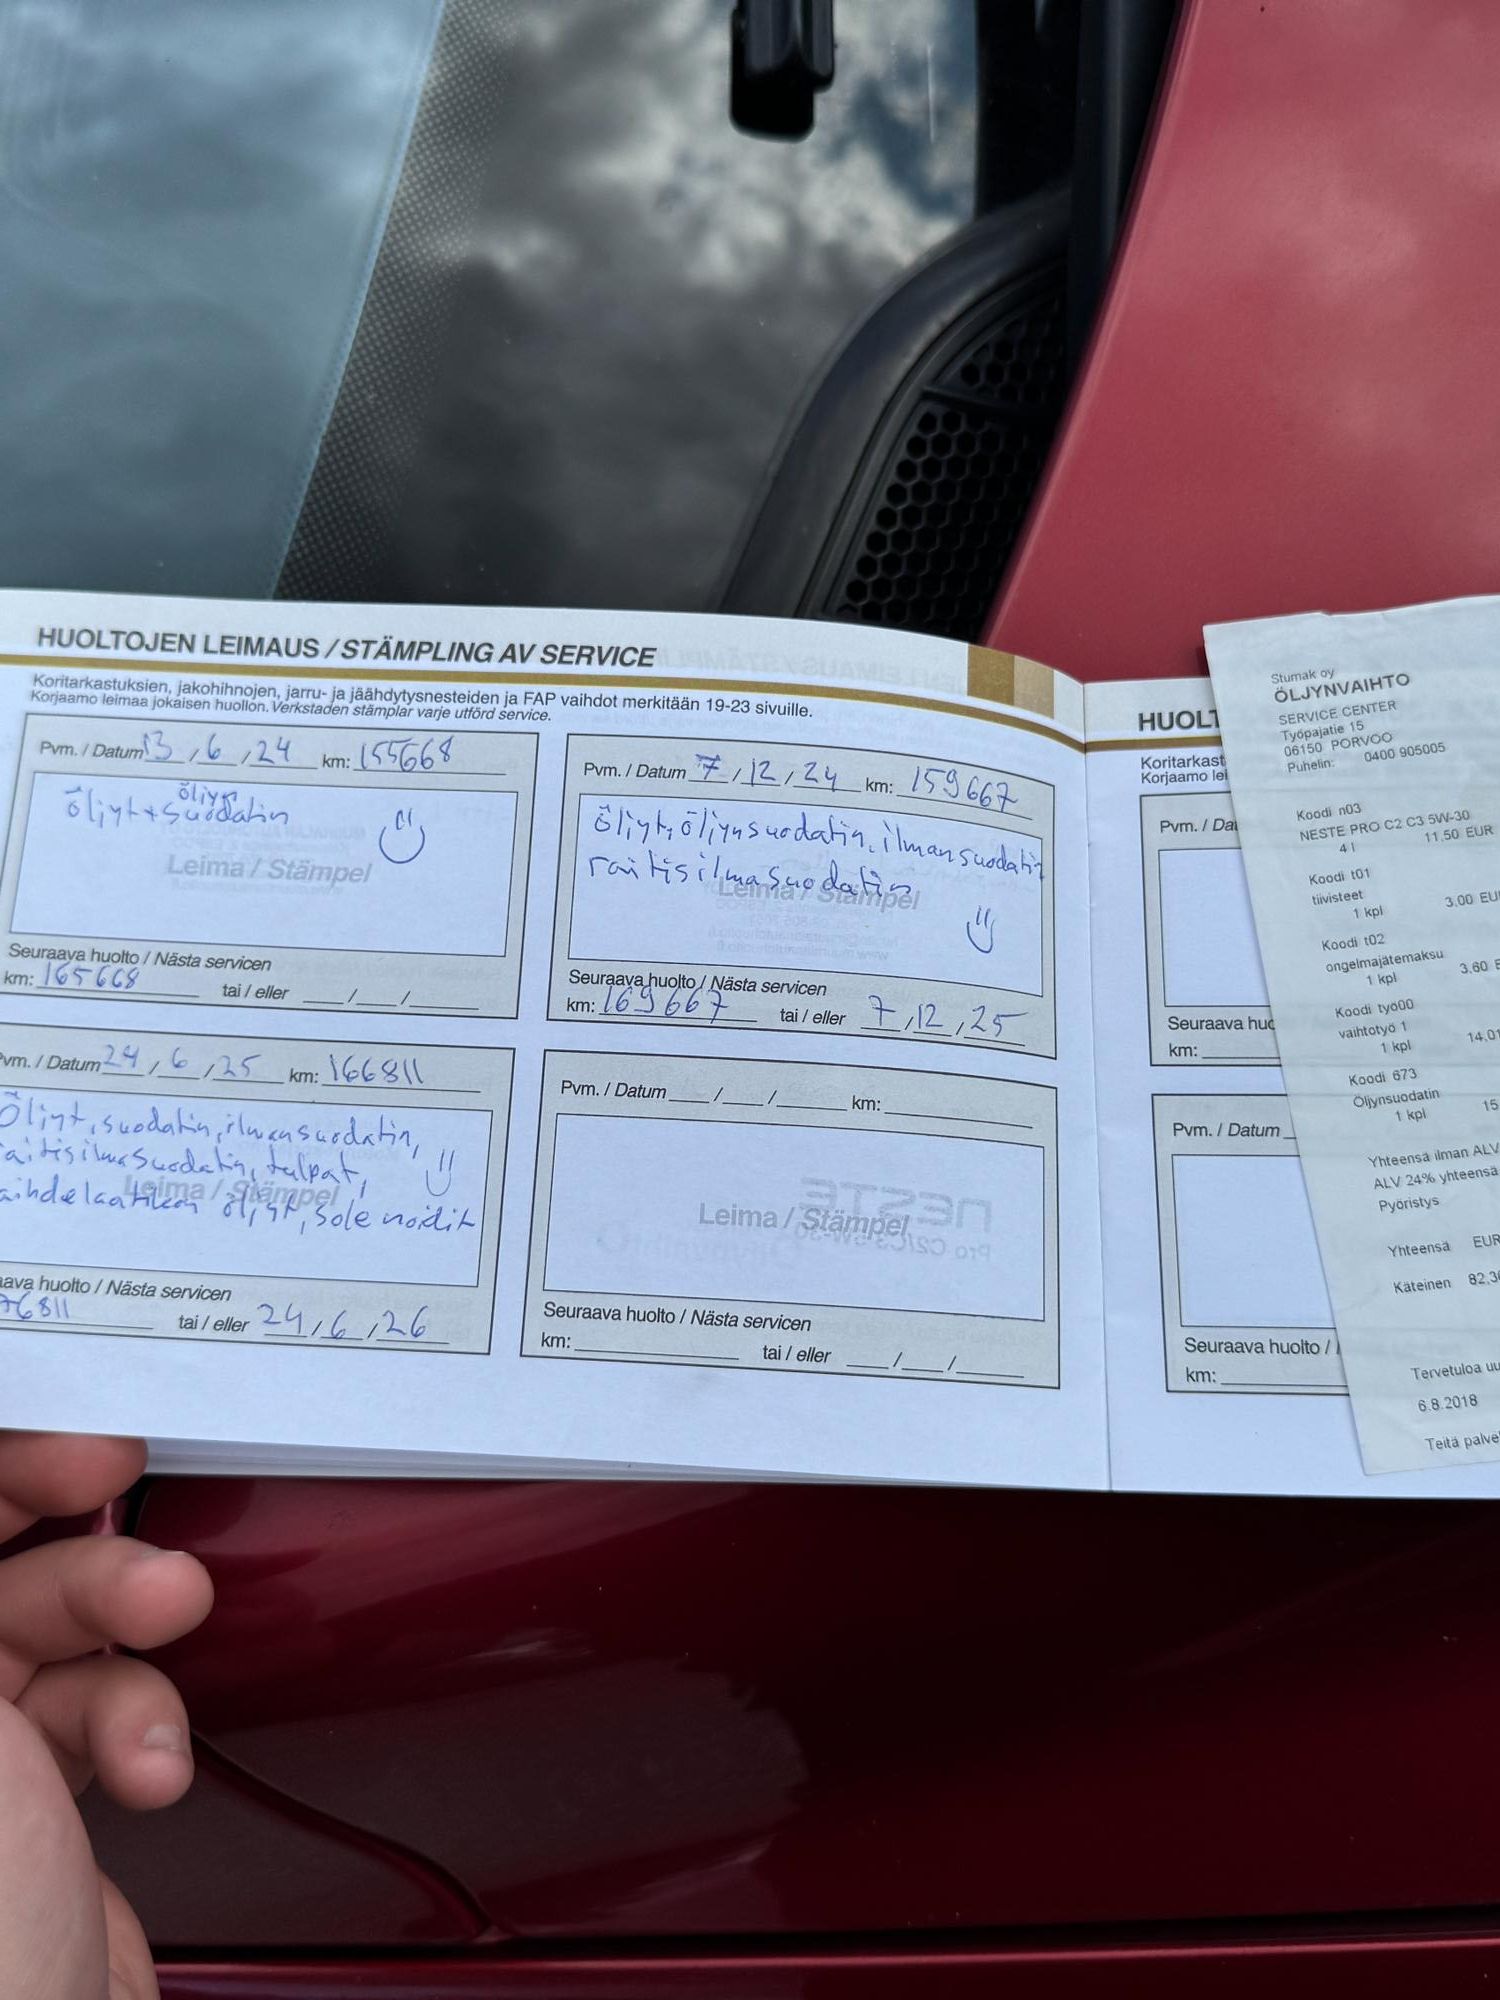 HUOLTOJEN LEIMAUS / STÄMPLING AV SERVICE
Koritarkastuksien, jakohihnojen, jarru- ja jäähdytysnesteiden ja FAP vaihdot merkitään 19-23 sivuille.
Korjaamo leimaa jokaisen huollon. Verkstaden stämplar varje utförd service.
Pvm. / Datum 13 / 6 / 24 km: 155668
öljyn
öljyt + suodatin
Leima / Stämpel
Seuraava huolto / Nästa servicen
km: 165668 tai / eller __/__/__
Pvm. / Datum 7 / 12 / 24 km: 159667
Öljyt, öljynsuodatin, ilmansuodatin
raitisilmasuodatin
Leima / Stämpel
Seuraava huolto / Nästa servicen
km: 169667 tai / eller 7 / 12 / 25
vm. / Datum 24 / 6 / 25 km: 166811
Öljyt, suodatin, ilmansuodatin,
aitisilmasuodatin, tulpat,
aihdelaatikon öljyt, solenoidit
Leima / Stämpel
aava huolto / Nästa servicen
76811 tai / eller 24 / 6 / 26
Pvm. / Datum __/__/__ km:
Leima / Stämpel
Seuraava huolto / Nästa servicen
km: tai / eller __/__/__
HUOLT
Koritarkast
Korjaamo lei
Pvm. / Dat
Seuraava huo
km:
Pvm. / Datum
Seuraava huolto /
km:
Stumak oy
ÖLJYNVAIHTO
SERVICE CENTER
Työpajatie 15
06150 PORVOO
Puhelin: 0400 905005
Koodi n03
NESTE PRO C2 C3 5W-30
4 l 11,50 EUR
Koodi t01
tiivisteet
1 kpl 3,00 EU
Koodi t02
ongelmajätemaksu
1 kpl 3,60 E
Koodi tyo00
vaihtotyö 1
1 kpl 14,01
Koodi 673
Öljynsuodatin
1 kpl 15
Yhteensä ilman ALV
ALV 24% yhteensä
Pyöristys
Yhteensä EUR
Käteinen 82,3
Tervetuloa uu
6.8.2018
Teitä palve